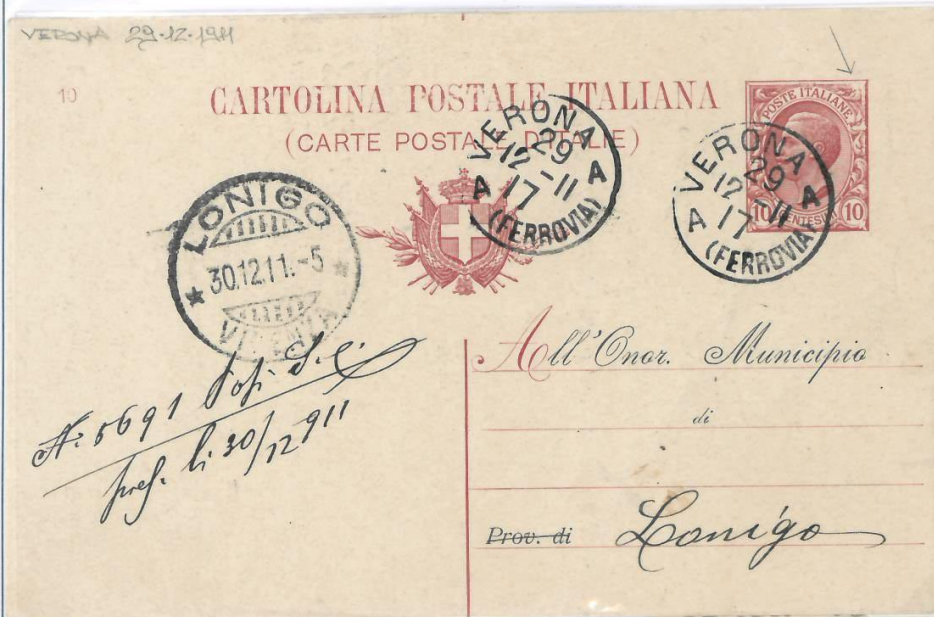 VERONA 29·12·1911
10
CARTOLINA POSTALE ITALIANA
(CARTE POSTALE D'ITALIE)
POSTE ITALIANE
10 CENTESIMI 10
VERONA
29
12 - 11
A 17 A
(FERROVIA)
VERONA
29
12 - 11
A 17 A
(FERROVIA)
LONIGO
30.12.11.-5
VICENZA
All'Onor. Municipio
di
Prov. di Lonigo
N. 5691
30/12 911